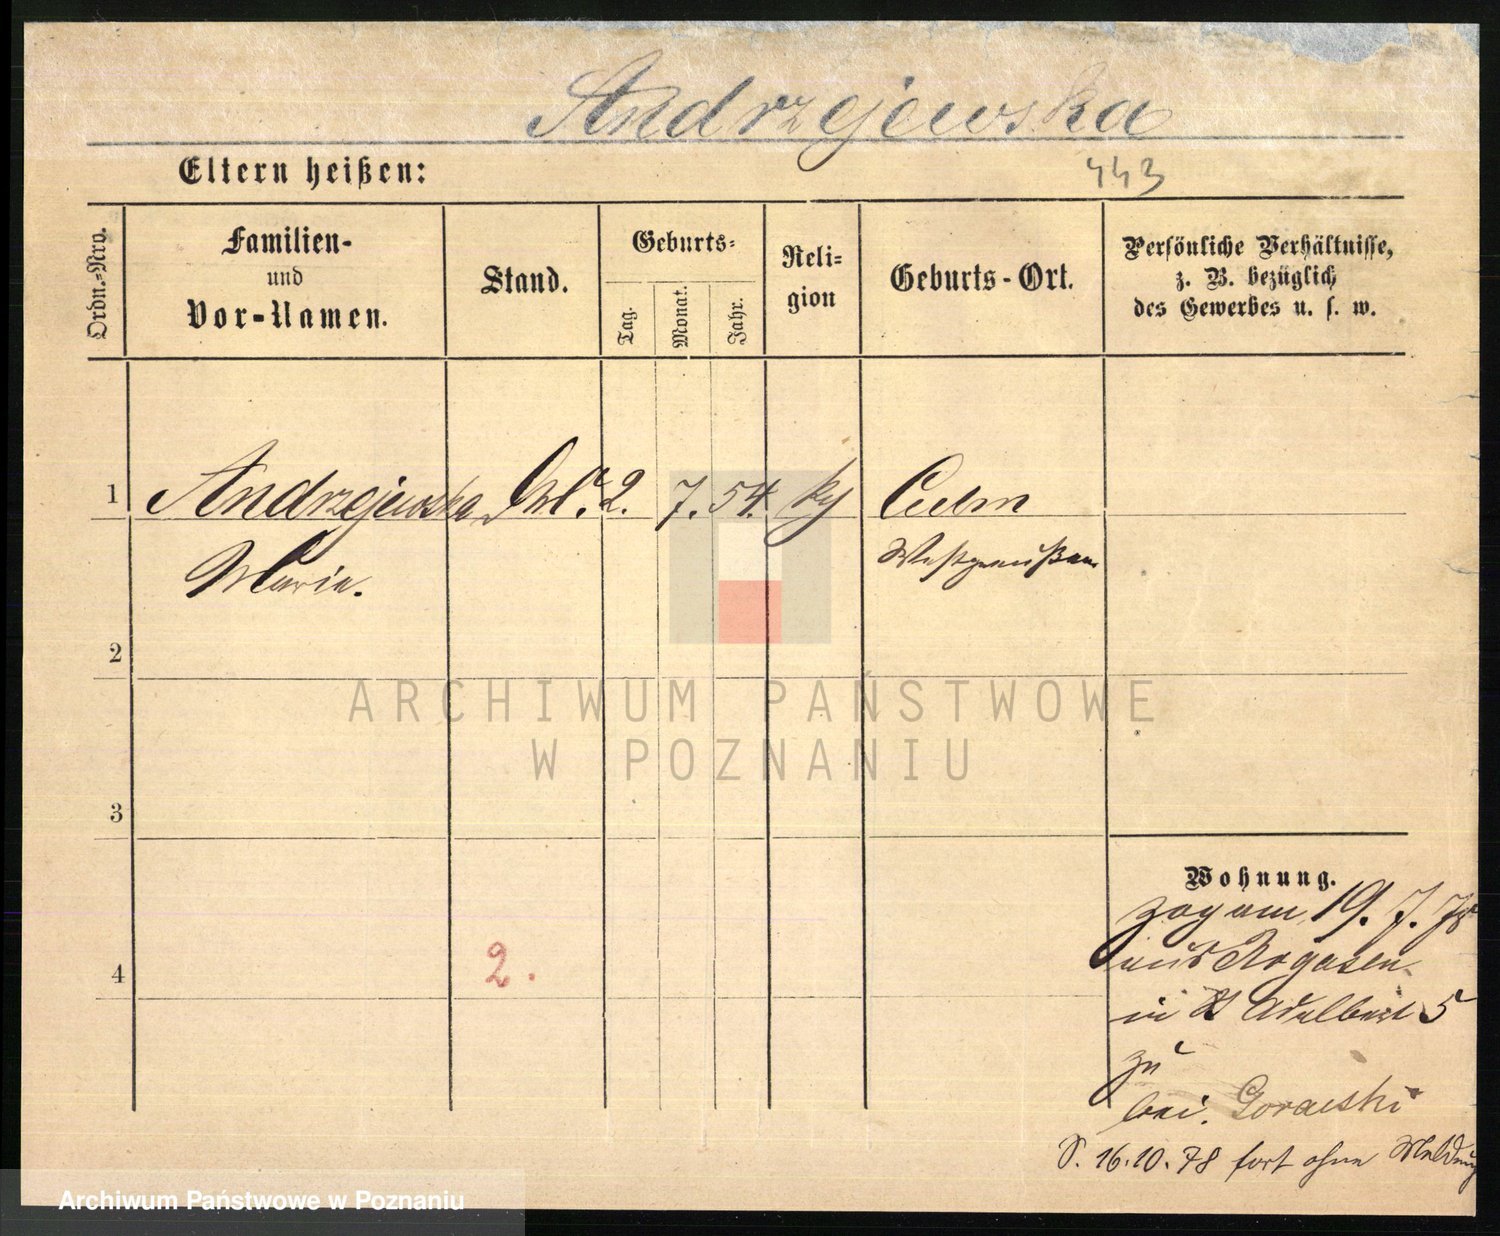 Andrzejewska
Eltern heißen:
443
Ordn.-Nro.
Familien-
und
Vor-Namen.
Stand.
Geburts-
Tag.
Monat.
Jahr.
Reli-
gion
Geburts-Ort.
Persönliche Verhältnisse,
z. B. bezüglich
des Gewerbes u. s. w.
1 Andrzejewska 2. 7. 54. Culm
Marie. Westpreußen
2
ARCHIWUM PAŃSTWOWE
W POZNANIU
3
Wohnung.
zog am 19. 7. 78
aus Rogasen
4 2.
in St Adalbert 5
zu
bei. Goraeski
16.10.78 fort ohne Meldung
Archiwum Państwowe w Poznaniu